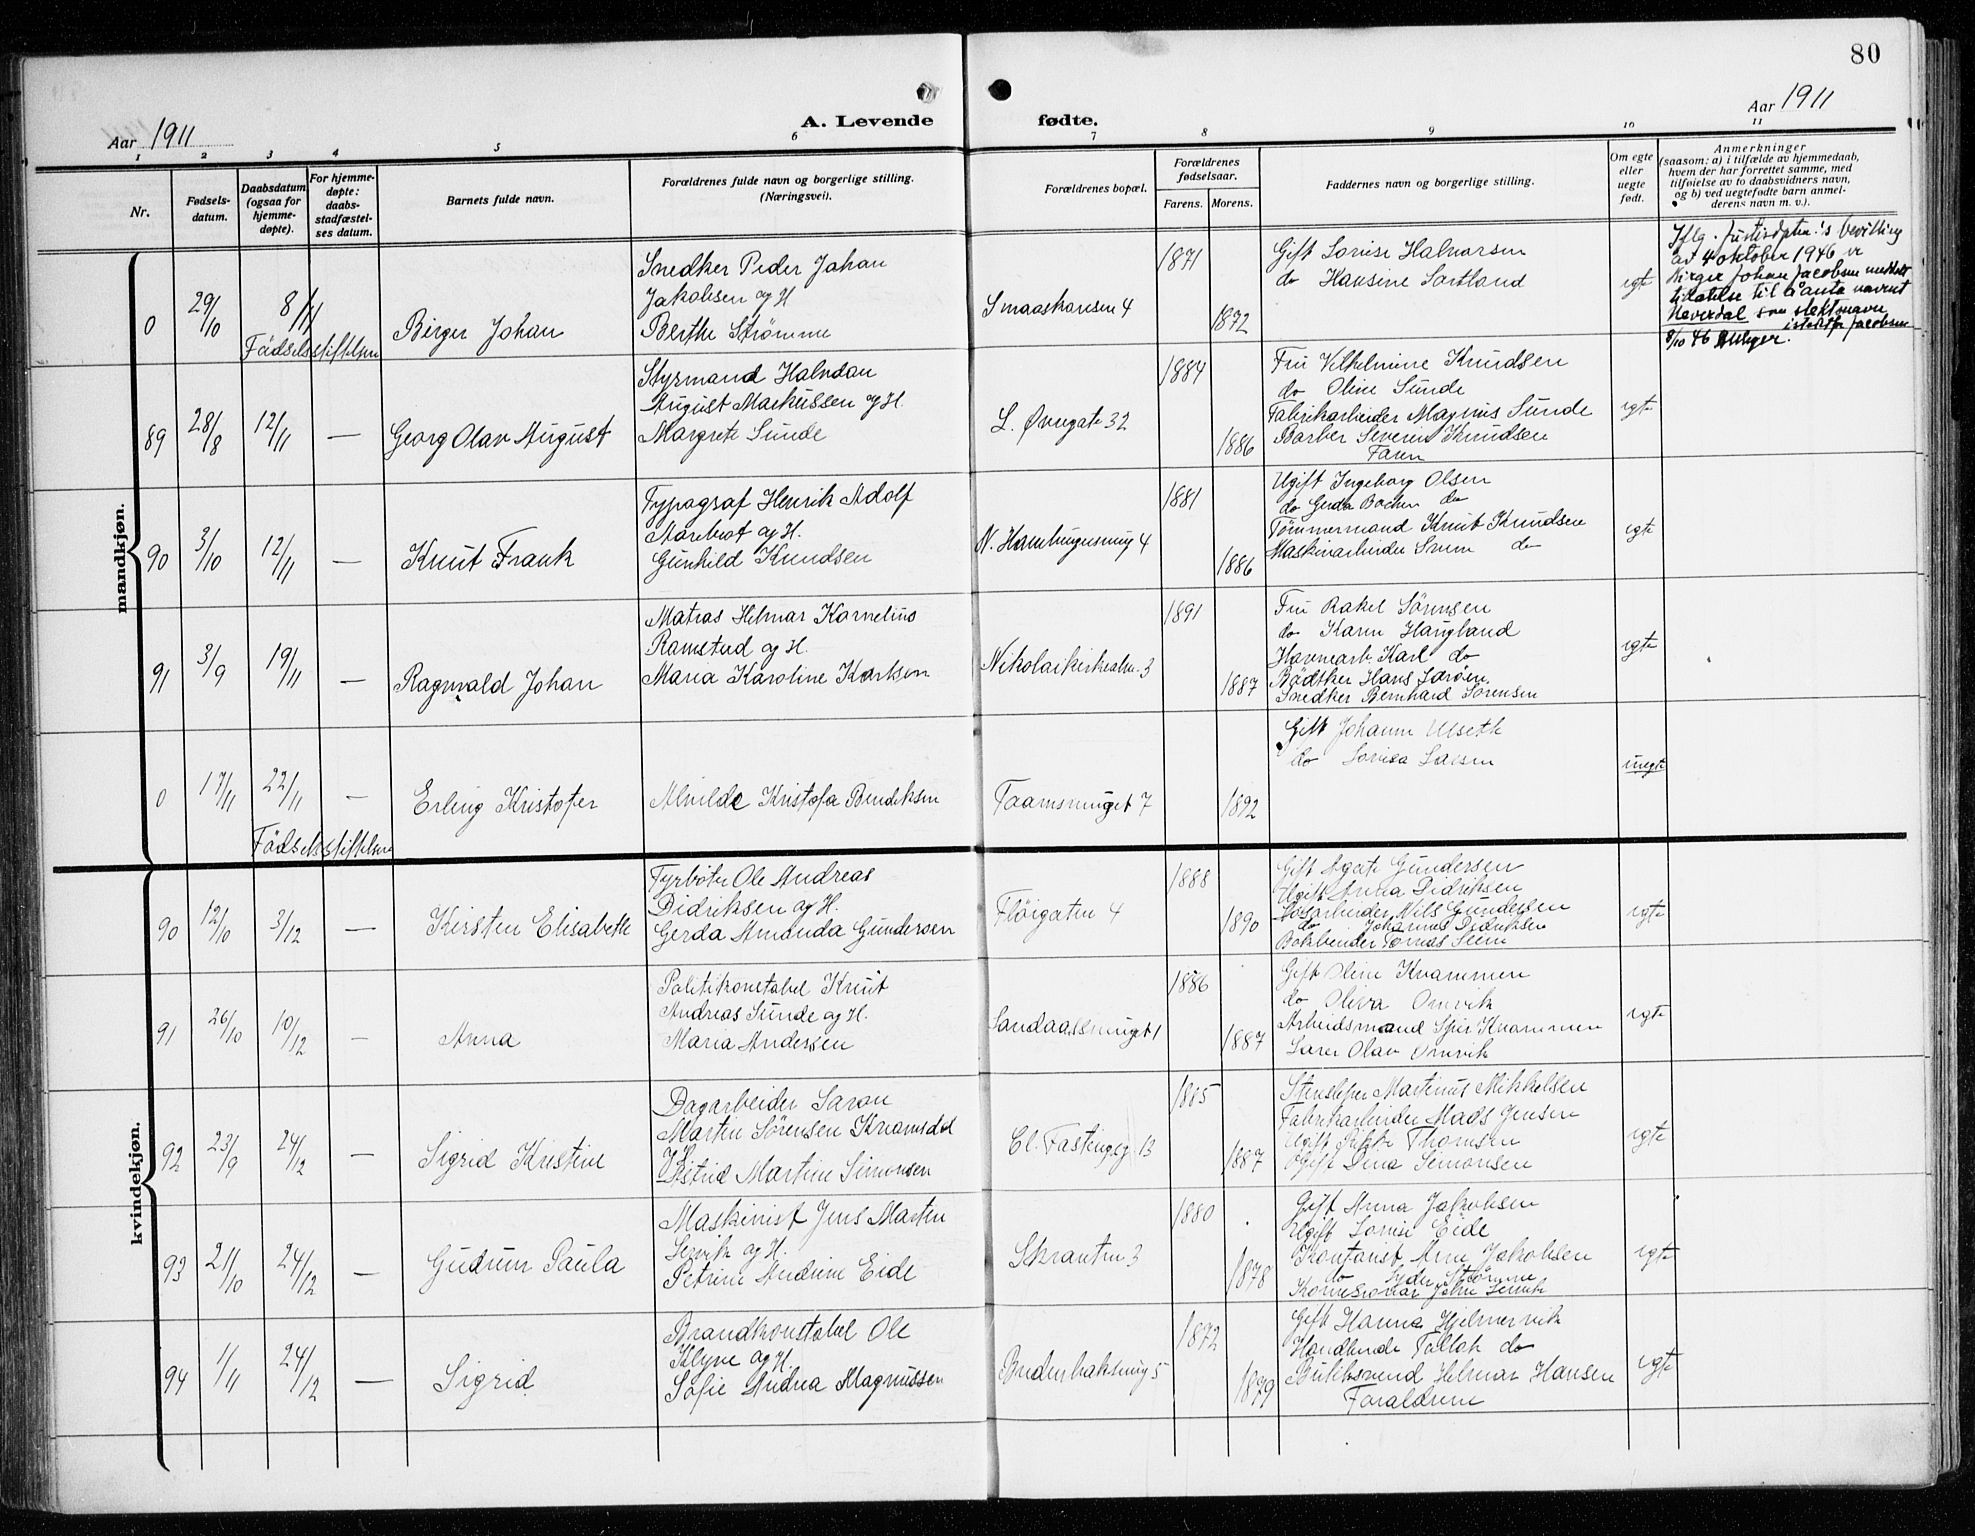 80
Aar 1911
A. Levende fødte.
Aar 1911
1 2 3 4 5 6 7 8 9 10 11
Nr.
Fødsels-
datum.
Daabsdatum
(ogsaa for
hjemme-
døpte).
For hjemme-
døpte:
daabs-
stadfæstel-
ses datum.
Barnets fulde navn.
Forældrenes fulde navn og borgerlige stilling.
(Næringsvei).
Forældrenes bopæl.
Forældrenes
fødselsaar.
Farens. Morens.
Faddernes navn og borgerlige stilling.
Om egte
eller
uegte
født.
Anmerkninger
(saasom: a) i tilfælde av hjemmedaab,
hvem der har forrettet samme, med
tilføielse av to daabsvidners navn,
og b) ved uegtefødte barn anmel-
derens navn m. v.).
mandkjøn.
0 29/10 8/11
Fødselsstiftelsen
Birger Johan
Snedker Peder Johan
Jakobsen og H
Berthe Strømme
Smaaskansen 4
1871 1872
Gift Lovise Halvorsen
do Hansine Sortland
egte
av 4 oktober 1946 er
Birger Johan Jacobsen meddelt
tillatelse til å anta navnet
Heverdal som slektsnavn
istedenfor Jacobsen
8/10 46
89 28/8 12/11 —
Georg Olav August
Styrmand Halvdan
August Markussen og H.
Margrete Sunde
L. Øvregate 32
1884 1886
Fru Vilhelmine Knudsen
do Oline Sunde
Fabrikarbeider Magnus Sunde
Barber Severin Knudsen
Faren
egte
90 3/10 12/11 —
Knut Frank
Typograf Henrik Adolf
Aarebrot og H.
Gunhild Knudsen
N. Hamburgersmug 4
1881 1886
Ugift Ingeborg Olsen
do Gerda Bocken do
Tømmermand Knut Knudsen
Maskinarbeider Sverre do
egte
91 3/9 19/11 —
Ragnvald Johan
Matros Helmar Kornelius
Ramstad og H.
Maria Karoline Karlsen
Nikolaikirkealm. 3
1891 1887
Fru Rakel Sørensen
do Karen Haugland
Havnearb. Karl do
Bødtker Hans
Snedker Bernhard Sørensen
egte
0 17/11 22/11 —
Fødselsstiftelsen
Erling Kristofer
Alvilde Kristofa Bendiksen
Taarnsmuget 7
1892
Gift Johanne Ulseth
do Lovisa Larsen
uegte
kvindekjøn.
90 12/10 3/12 —
Kirsten Elisabeth
Fyrbøter Ole Andreas
Didriksen og H.
Gerda Amanda Gundersen
Fløigaten 4
1888 1890
Gift Agate Gundersen
Ugift Anna Didriksen
Løsarbeider Nils Gundersen
do Johannes Didriksen
Bokbinder Tomas Steen
egte
91 26/10 10/12 —
Anna
Politikonstabel Knut
Andreas Sunde og H.
Maria Andersen
Sandaassmuget 1
1886 1887
Gift Oline Kvammen
do Olivia Omvik
Arbeidsmand Sjur Kvammen
Lærer Olav Omvik
egte
92 23/9 24/12 —
Sigrid Kristine
Dagarbeider Laron
Martin Sørensen Kvamsdal
og H.
Astrid Martine Simonsen
Cl. Fastingsg 13
1885 1887
Stensliper Martinus Mikkelsen
Fabrikarbeider Mads Jensen
Ugift Thomsen
Ugift Dina Simonsen
egte
93 21/10 24/12 —
Gudrun Paula
Maskinist Jens Martin
Lervik og H.
Petrine Andrine Eide
Skranten 3
1880 1878
Gift Anna Jakobsen
Ugift Lovise Eide
Kontorist Arne Jakobsen
do Strømme
egte
94 1/11 24/12 —
Sigrid
Brandkonstabel Ole
Klyve og H.
Sofie Andrea Magnussen
Bredenbaksmug 5
1872 1879
Gift Hanna Hjelmervik
Handlende Tollak do
Butiksvend Helmar Hansen
Forældrene
egte